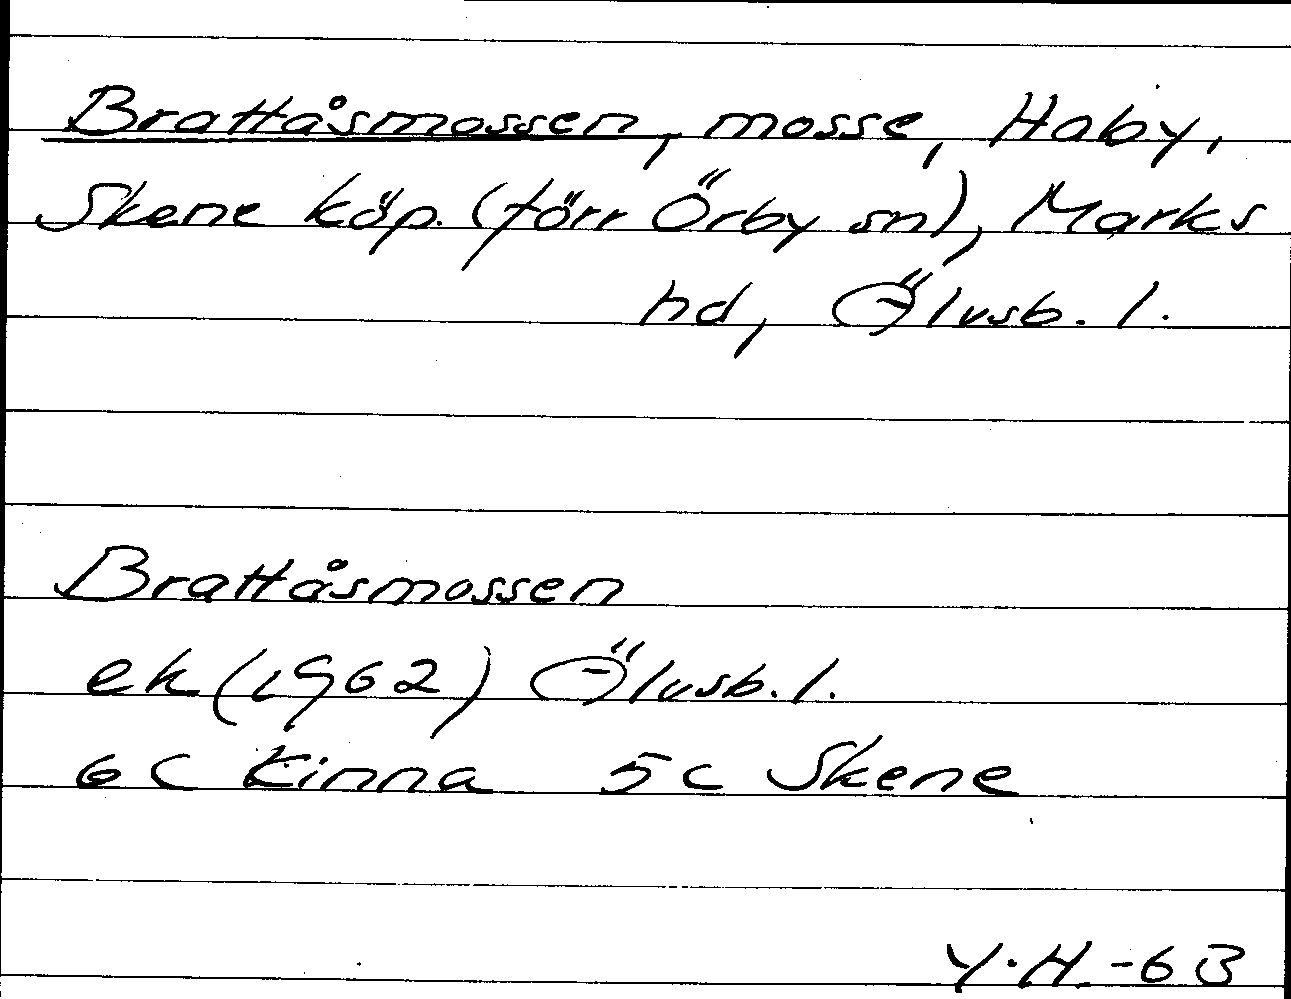 Brattåsmossen, mosse, Haby,
Skene köp. (förr Örby sn), Marks
hd, Älvsb. l.
Brattåsmossen
ek (1962) Älvsb. l.
6 C Kinna 5 c Skene
Y.H. -63